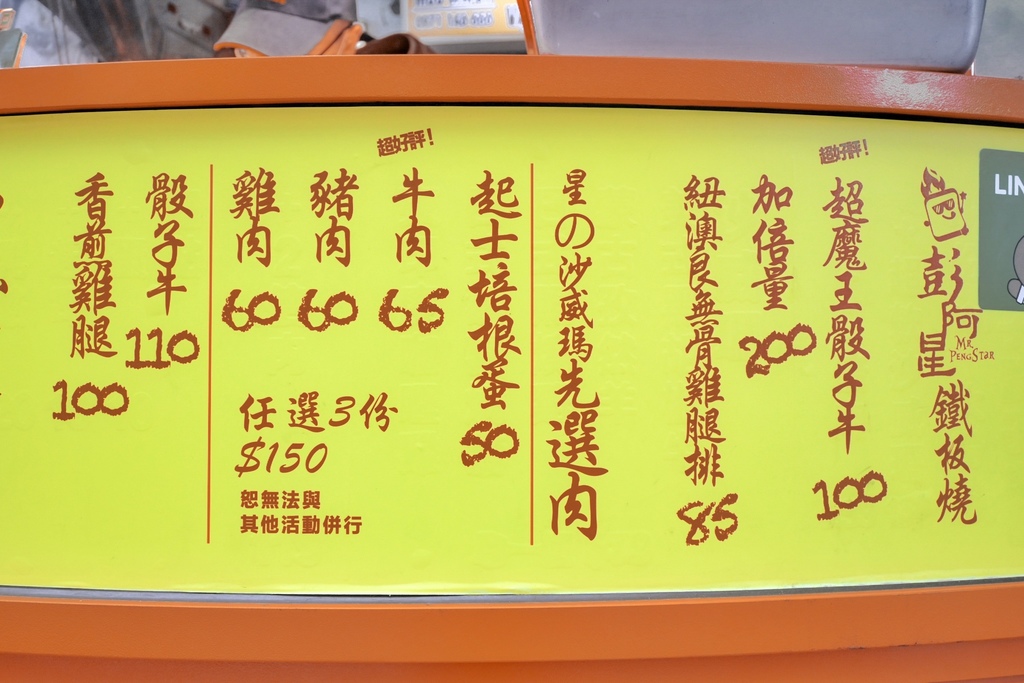 LIN
彭阿星鐵板燒
MR
PENGSTAR
超好評!
超魔王骰子牛
100
加倍量
200
紐澳良無骨雞腿排
85
星の沙威瑪先選肉
起士培根蛋
50
超好評!
牛肉
65
豬肉
60
雞肉
60
任選3份
$150
恕無法與
其他活動併行
骰子牛
110
香煎雞腿
100